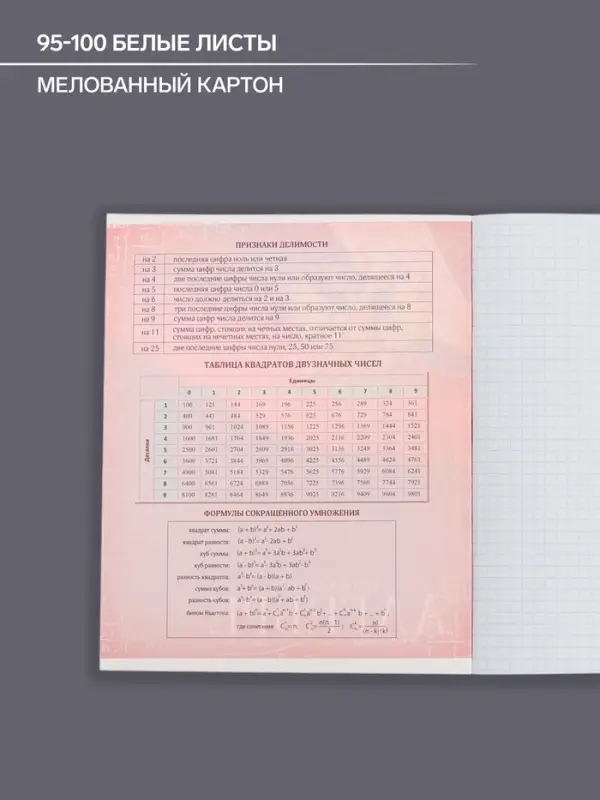 95-100 БЕЛЫЕ ЛИСТЫ
МЕЛОВАННЫЙ КАРТОН
ПРИЗНАКИ ДЕЛИМОСТИ
на 2 последняя цифра ноль или четная
на 3 сумма цифр числа делится на 3
на 4 две последние цифры числа нули или образуют число, делящееся на 4
на 5 последняя цифра числа 0 или 5
на 6 число должно делиться на 2 и на 3
на 8 три последние цифры числа нули или образуют число, делящееся на 8
на 9 сумма цифр числа делится на 9
на 11 сумма цифр, стоящих на четных местах, отличается от суммы цифр,
стоящих на нечетных местах, на число, кратное 11
на 25 две последние цифры числа нули, 25, 50 или 75
ТАБЛИЦА КВАДРАТОВ ДВУЗНАЧНЫХ ЧИСЕЛ
Единицы
0 1 2 3 4 5 6 7 8 9
Десятки
1 100 121 144 169 196 225 256 289 324 361
2 400 441 484 529 576 625 676 729 784 841
3 900 961 1024 1089 1156 1225 1296 1369 1444 1521
4 1600 1681 1764 1849 1936 2025 2116 2209 2304 2401
5 2500 2601 2704 2809 2916 3025 3136 3249 3364 3481
6 3600 3721 3844 3969 4096 4225 4356 4489 4624 4761
7 4900 5041 5184 5329 5476 5625 5776 5929 6084 6241
8 6400 6561 6724 6889 7056 7225 7396 7569 7744 7921
9 8100 8281 8464 8649 8836 9025 9216 9409 9604 9801
ФОРМУЛЫ СОКРАЩЕННОГО УМНОЖЕНИЯ
квадрат суммы: (a + b)²= a²+ 2ab + b²
квадрат разности: (a - b)²= a²- 2ab + b²
куб суммы: (a + b)³= a³+ 3a²b + 3ab²+ b³
куб разности: (a - b)³= a³- 3a²b + 3ab²- b³
разность квадратов: a²- b²= (a - b)(a + b)
сумма кубов: a³+ b³= (a + b)(a²- ab + b²)
разность кубов: a³- b³= (a - b)(a²+ ab + b²)
бином Ньютона:
где сочетания